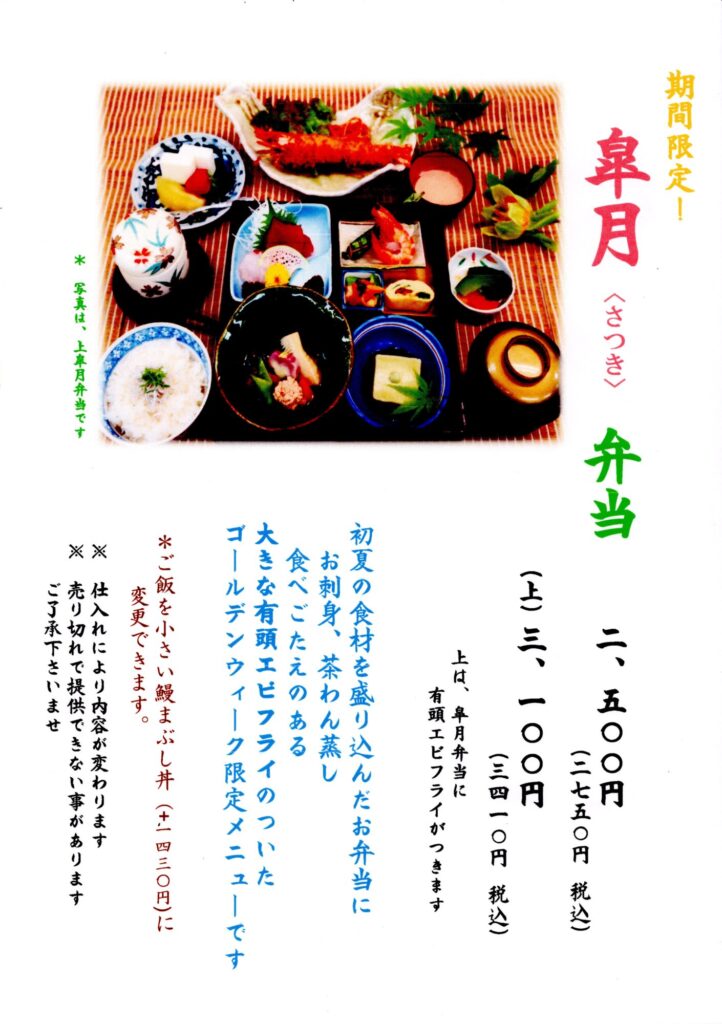 期間限定！
皐月〈さつき〉弁当
二、五〇〇円
（二七五〇円 税込）
（上）三、一〇〇円
（三四一〇円 税込）
上は、皐月弁当に
有頭エビフライがつきます
初夏の食材を盛り込んだお弁当に
お刺身、茶わん蒸し
食べごたえのある
大きな有頭エビフライのついた
ゴールデンウィーク限定メニューです
＊ご飯を小さい鰻まぶし丼（＋一四三〇円）に
変更できます。
※ 仕入れにより内容が変わります
※ 売り切れで提供できない事があります
ご了承下さいませ
＊ 写真は、上皐月弁当です